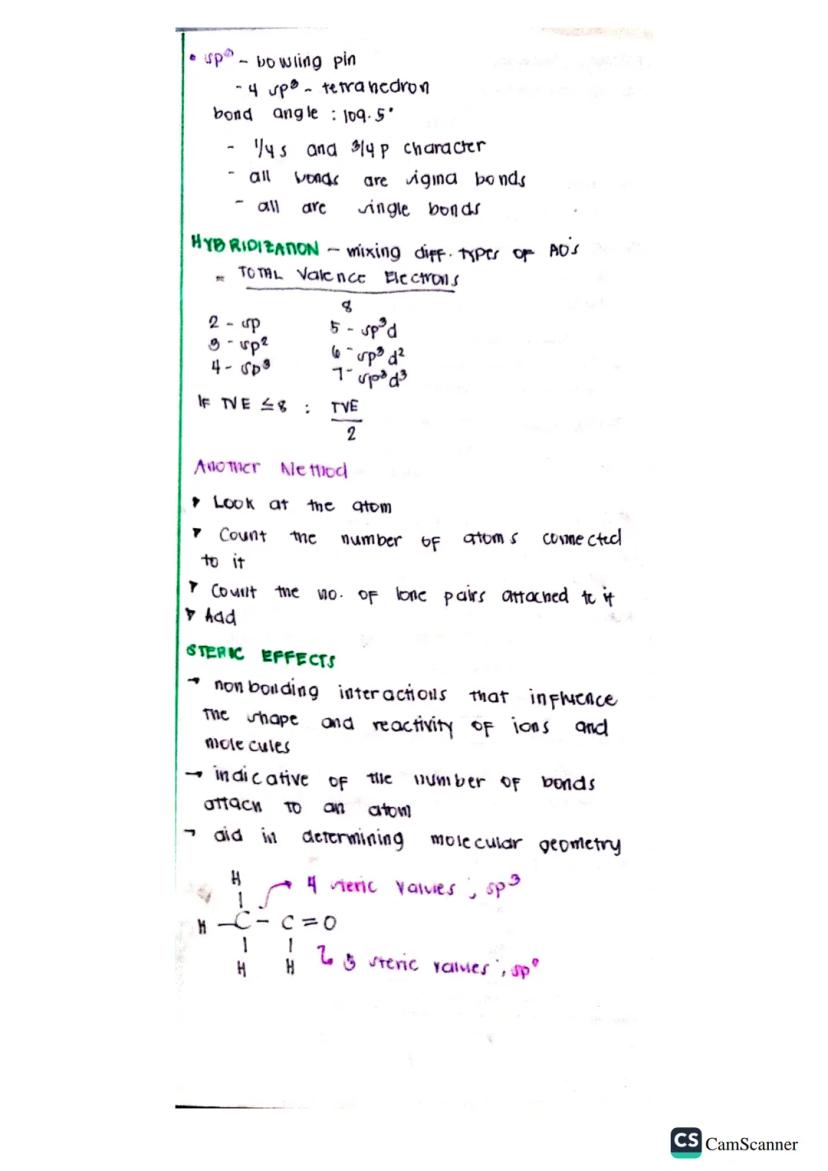 • sp³ - bowling pin
- 4 sp³ - tetrahedron
bond angle : 109.5°
- 1/4 s and 3/4 p character
- all bonds are sigma bonds
- all are single bonds
HYBRIDIZATION - mixing diff. types of AO's
= TOTAL Valence Electrons
8
2 - sp 5 - sp³d
3 - sp² 6 - sp³d²
4 - sp³ 7 - sp³d³
IF TVE ≤ 8 : TVE
2
Another Method
▸ Look at the atom
▸ Count the number of atoms connected
to it
▸ Count the no. of lone pairs attached to it
▸ Add
STERIC EFFECTS
→ nonbonding interactions that influence
the shape and reactivity of ions and
molecules
→ indicative of the number of bonds
attach to an atom
→ aid in determining molecular geometry
H
→ 4 steric values ; sp³
H - C - C = O
H H 3 steric values ; sp²
CS CamScanner